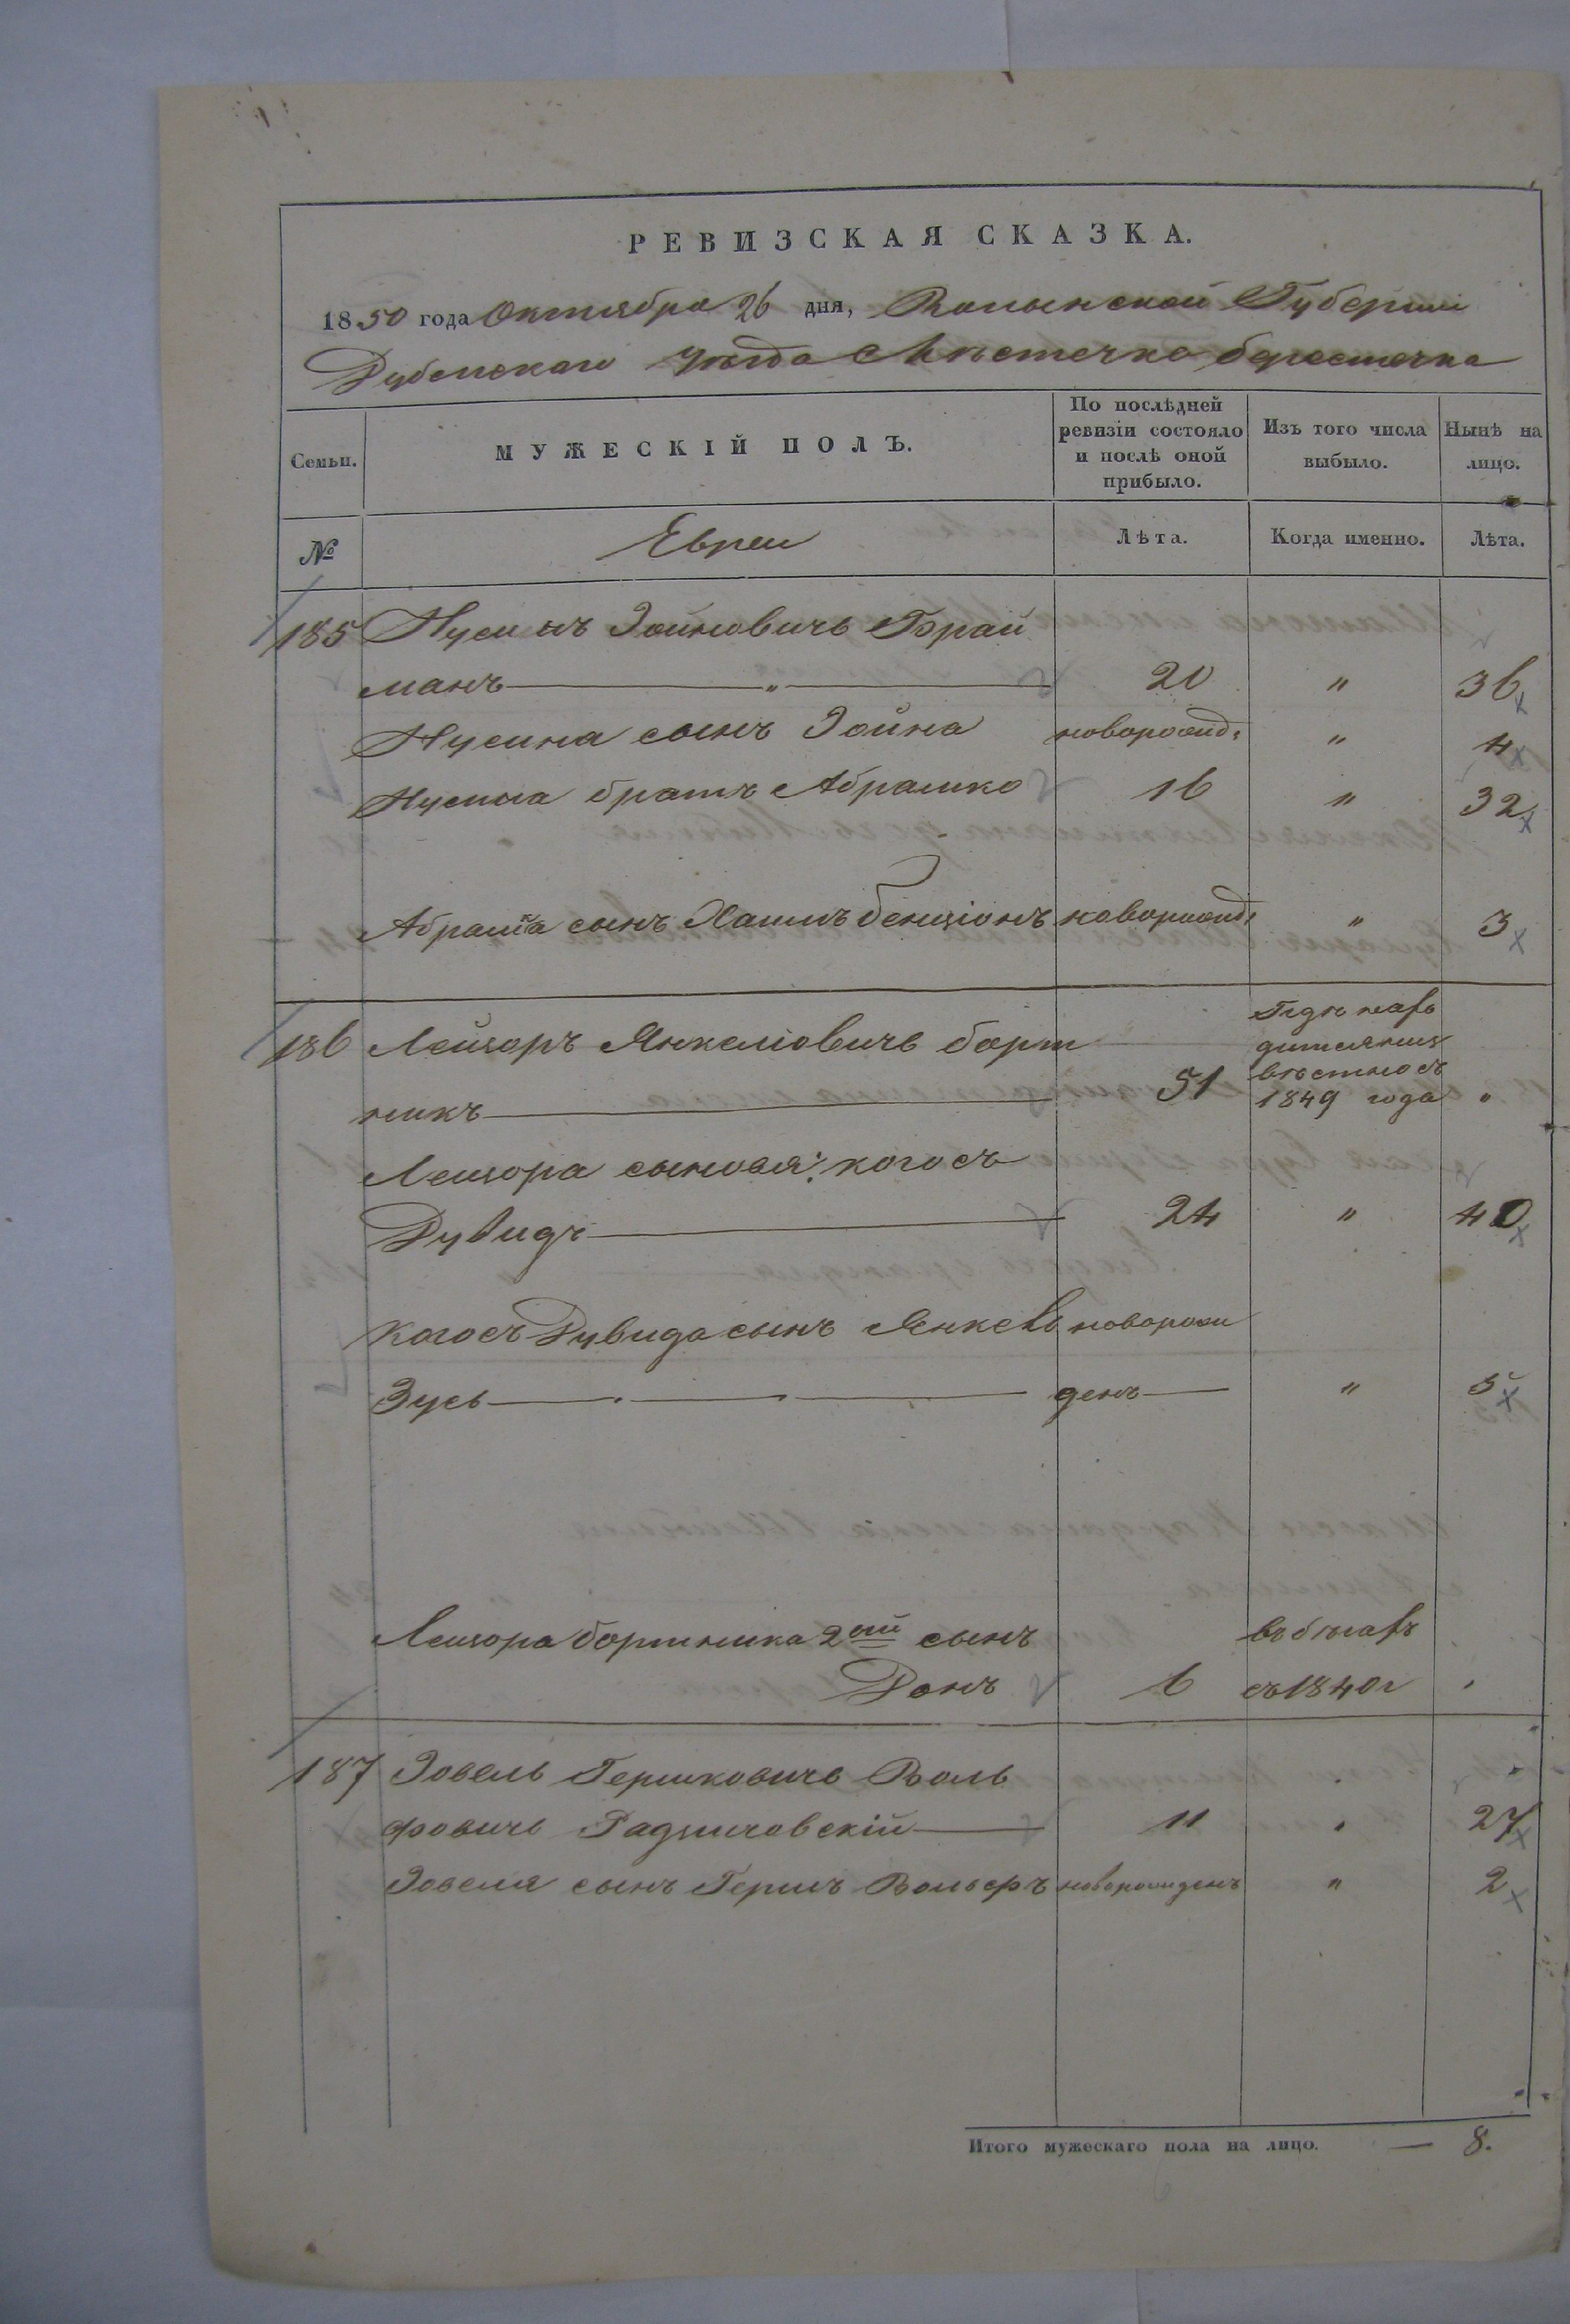 РЕВИЗСКАЯ СКАЗКА.
1850 года Октября 26 дня, Волынской Губерніи
Дубенскаго Уѣзда Мѣстечка берестечка
Семьи. МУЖЕСКІЙ ПОЛЪ. По послѣдней ревизіи состояло и послѣ оной прибыло. Изъ того числа выбыло. Нынѣ на лицо.
№ Евреи Лѣта. Когда именно. Лѣта.
185 Нусинъ Іойновичъ Брай
манъ 20 " 36
Нусина сынъ Іойна новорожд: " 4
Нусина братъ Абрамко 16 " 32
Абрамка сынъ Хаимъ бенціонъ новорожд: " 3
186 Лейзоръ Янкеліовичъ борт
никъ 51 1849 года "
Лейзора сыновья: когосъ
Дувидъ 24 " 40
Когосъ Дувида сынъ Янкель новорож
Зусь денъ " 5
Лейзора бортника 2ой сынъ въ бѣгахъ
Донъ 6 съ 1840 г "
187 Іовель Гершковичъ Воль
фовичъ 11 " 27
Іовеля сынъ Гершъ Вольфъ новорожденъ " 2
Итого мужескаго пола на лицо. — 8.